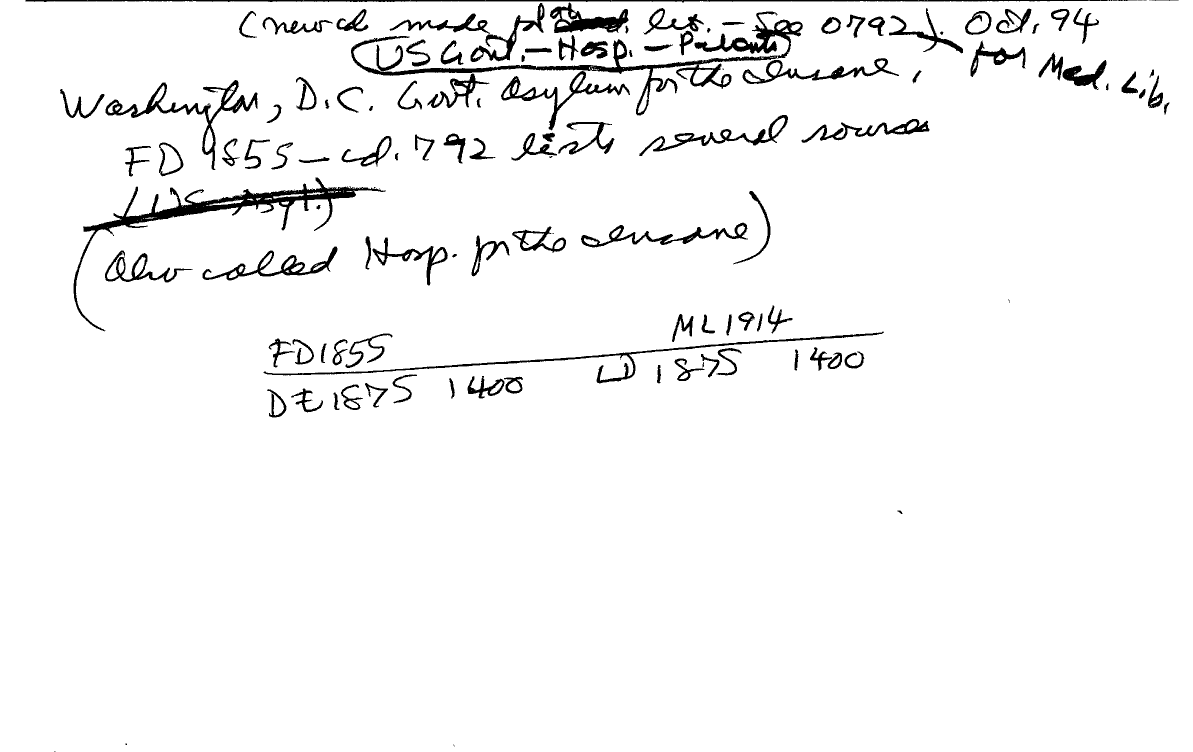 (new cd made for oth. lib. – See 0792). Oct. 94
for Med. Lib.
US Govt. – Hosp. – Patients
Washington, D.C. Govt. Asylum for the Insane,
FD 1855 – cd. 792 lists several sources
(US Asyl.)
(Also called Hosp. for the Insane)
FD1855 ML1914
DE1875 1400 LD 1875 1400